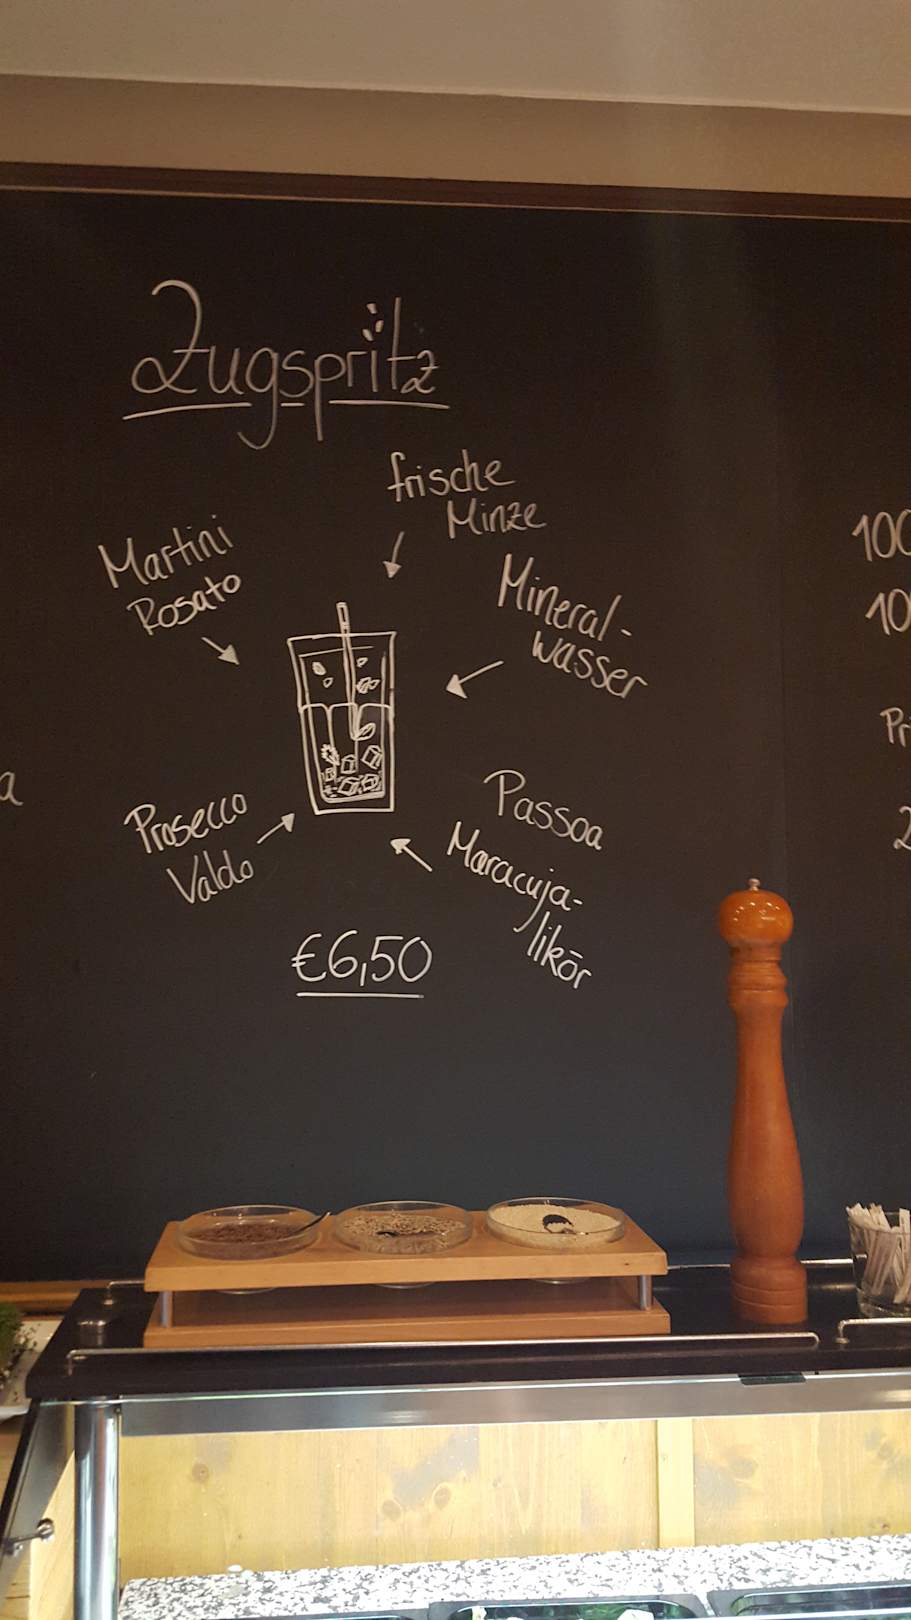 Zugspritz
frische
Minze
Martini
Rosato
Mineral-
wasser
Prosecco
Valdo
Passoa
Maracuja-
likör
€6,50